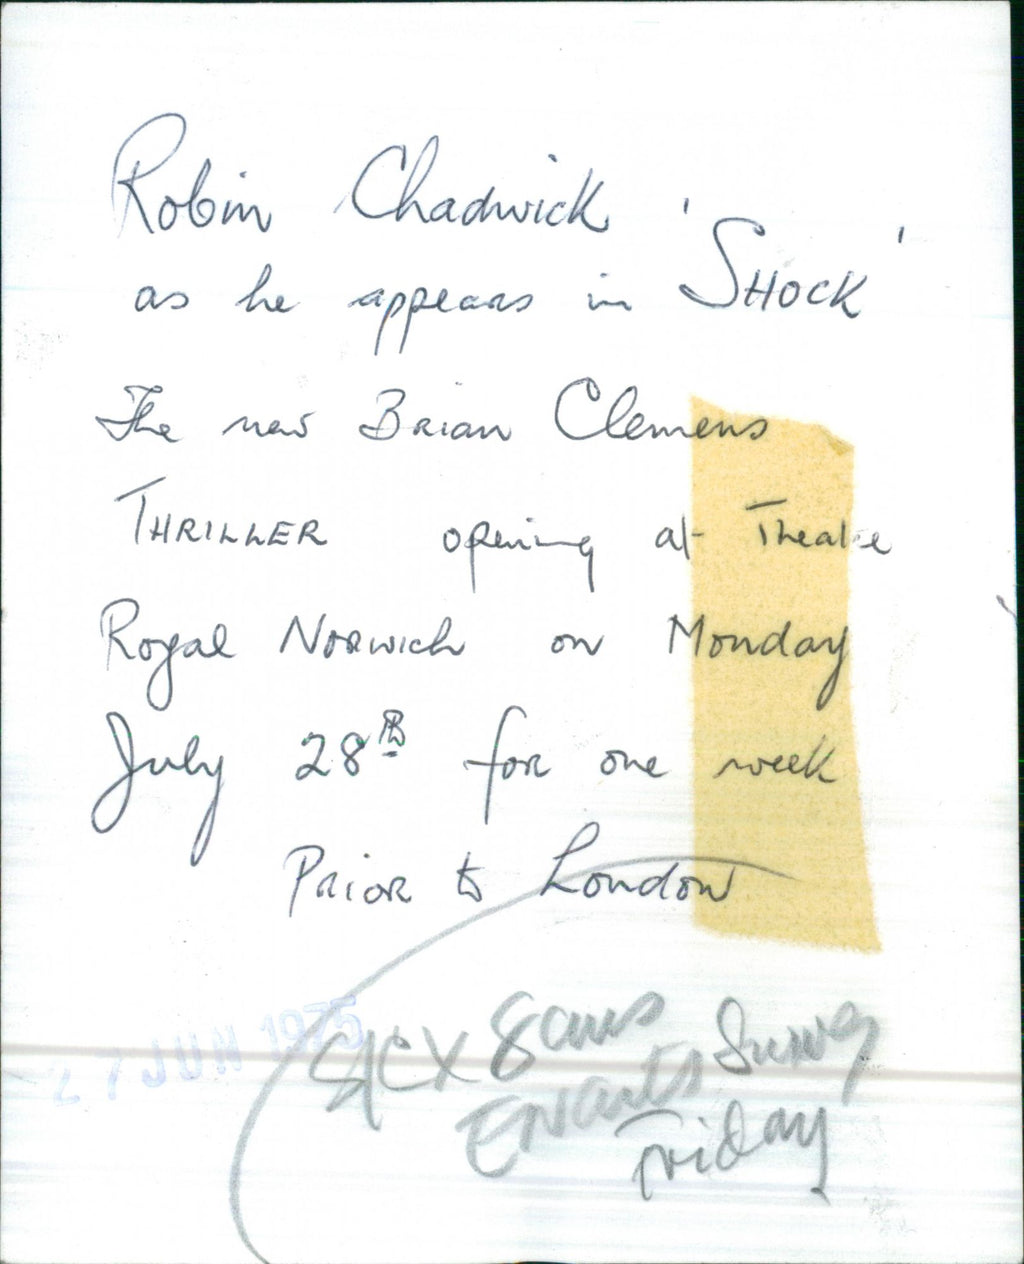 Robin Chadwick
as he appears in 'SHOCK'
The new Brian Clemens
THRILLER opening at Theatre
Royal Norwich on Monday
July 28th for one week
Prior to London
27 JUN 1975
8 cms
Friday